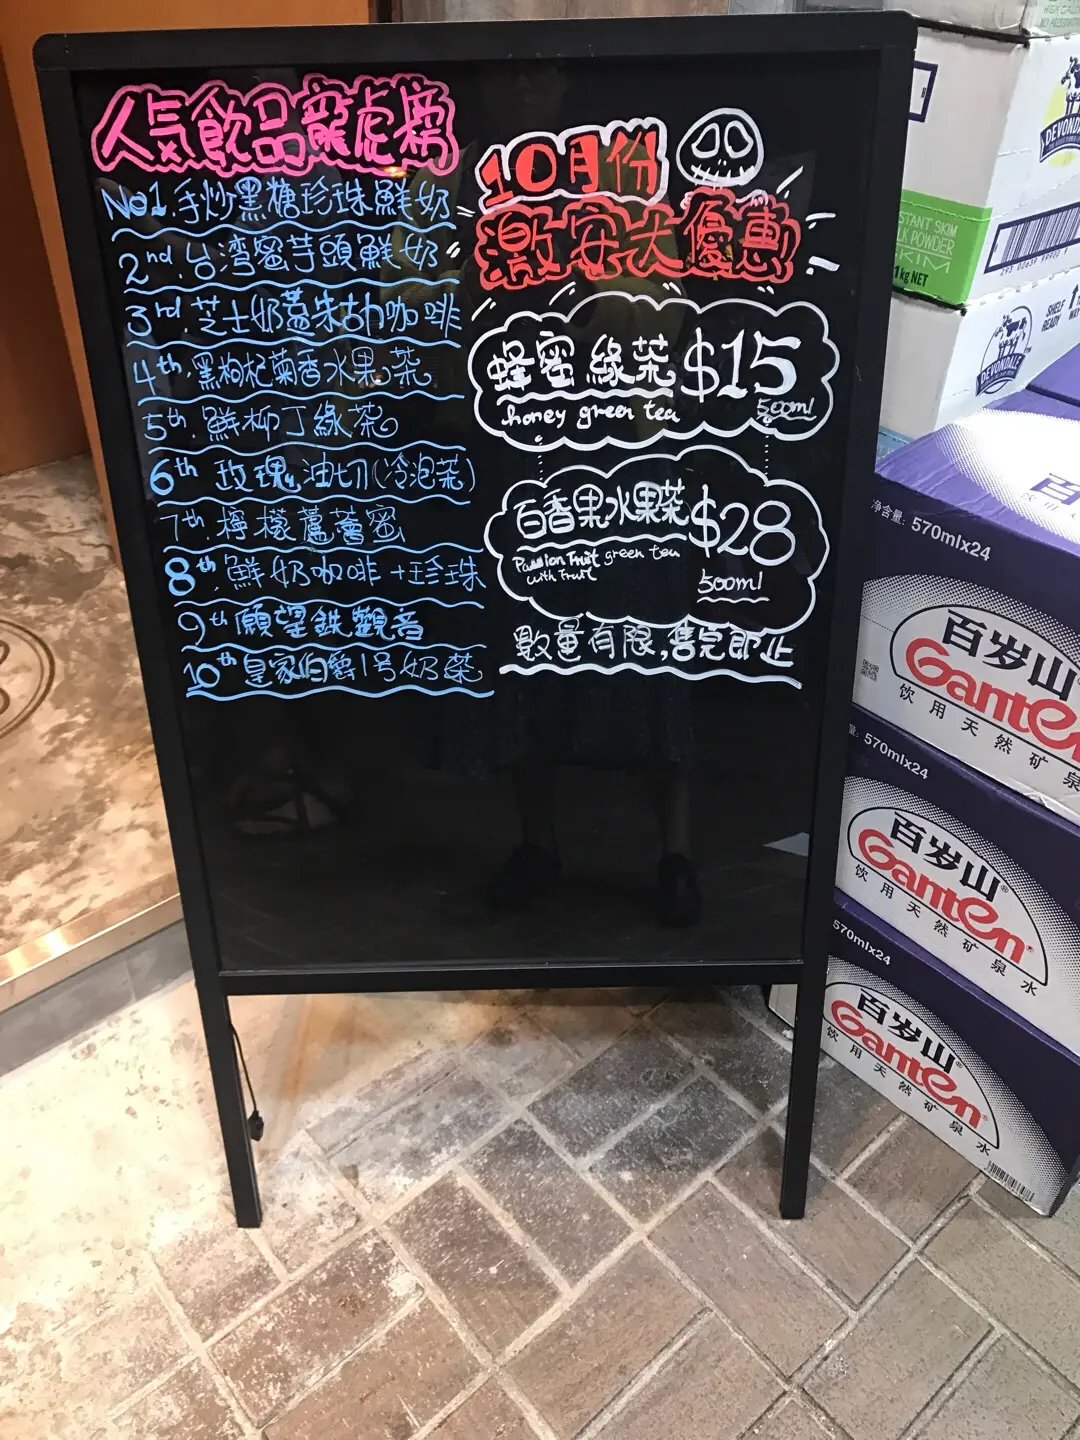 人気飲品龍虎榜
No1.手炒黑糖珍珠鮮奶
2nd.台灣蜜芋頭鮮奶
3rd.芝士奶蓋朱古力咖啡
4th.黑枸杞菊香水果茶
5th.鮮柳丁綠茶
6th 玫瑰油切(冷泡茶)
7th.檸檬蘆薈蜜
8th.鮮奶咖啡+珍珠
9th願望鉄觀音
10th皇家伯爵1号奶茶
10月份
激安大優惠
蜂蜜緑茶$15
honey green tea
500ml
百香果水果茶$28
Passion Fruit green tea
with Fruit
500ml
數量有限,售完即止
DEVONDALE
INSTANT SKIM
MILK POWDER
SKIM
1kg NET
SHELF
READY
DEVONDALE
净含量: 570mlx24
百岁山
Ganten
饮用天然矿泉
570mlx24
百岁山
Ganten
饮用天然矿泉水
570mlx24
百岁山
Ganten
饮用天然矿泉水